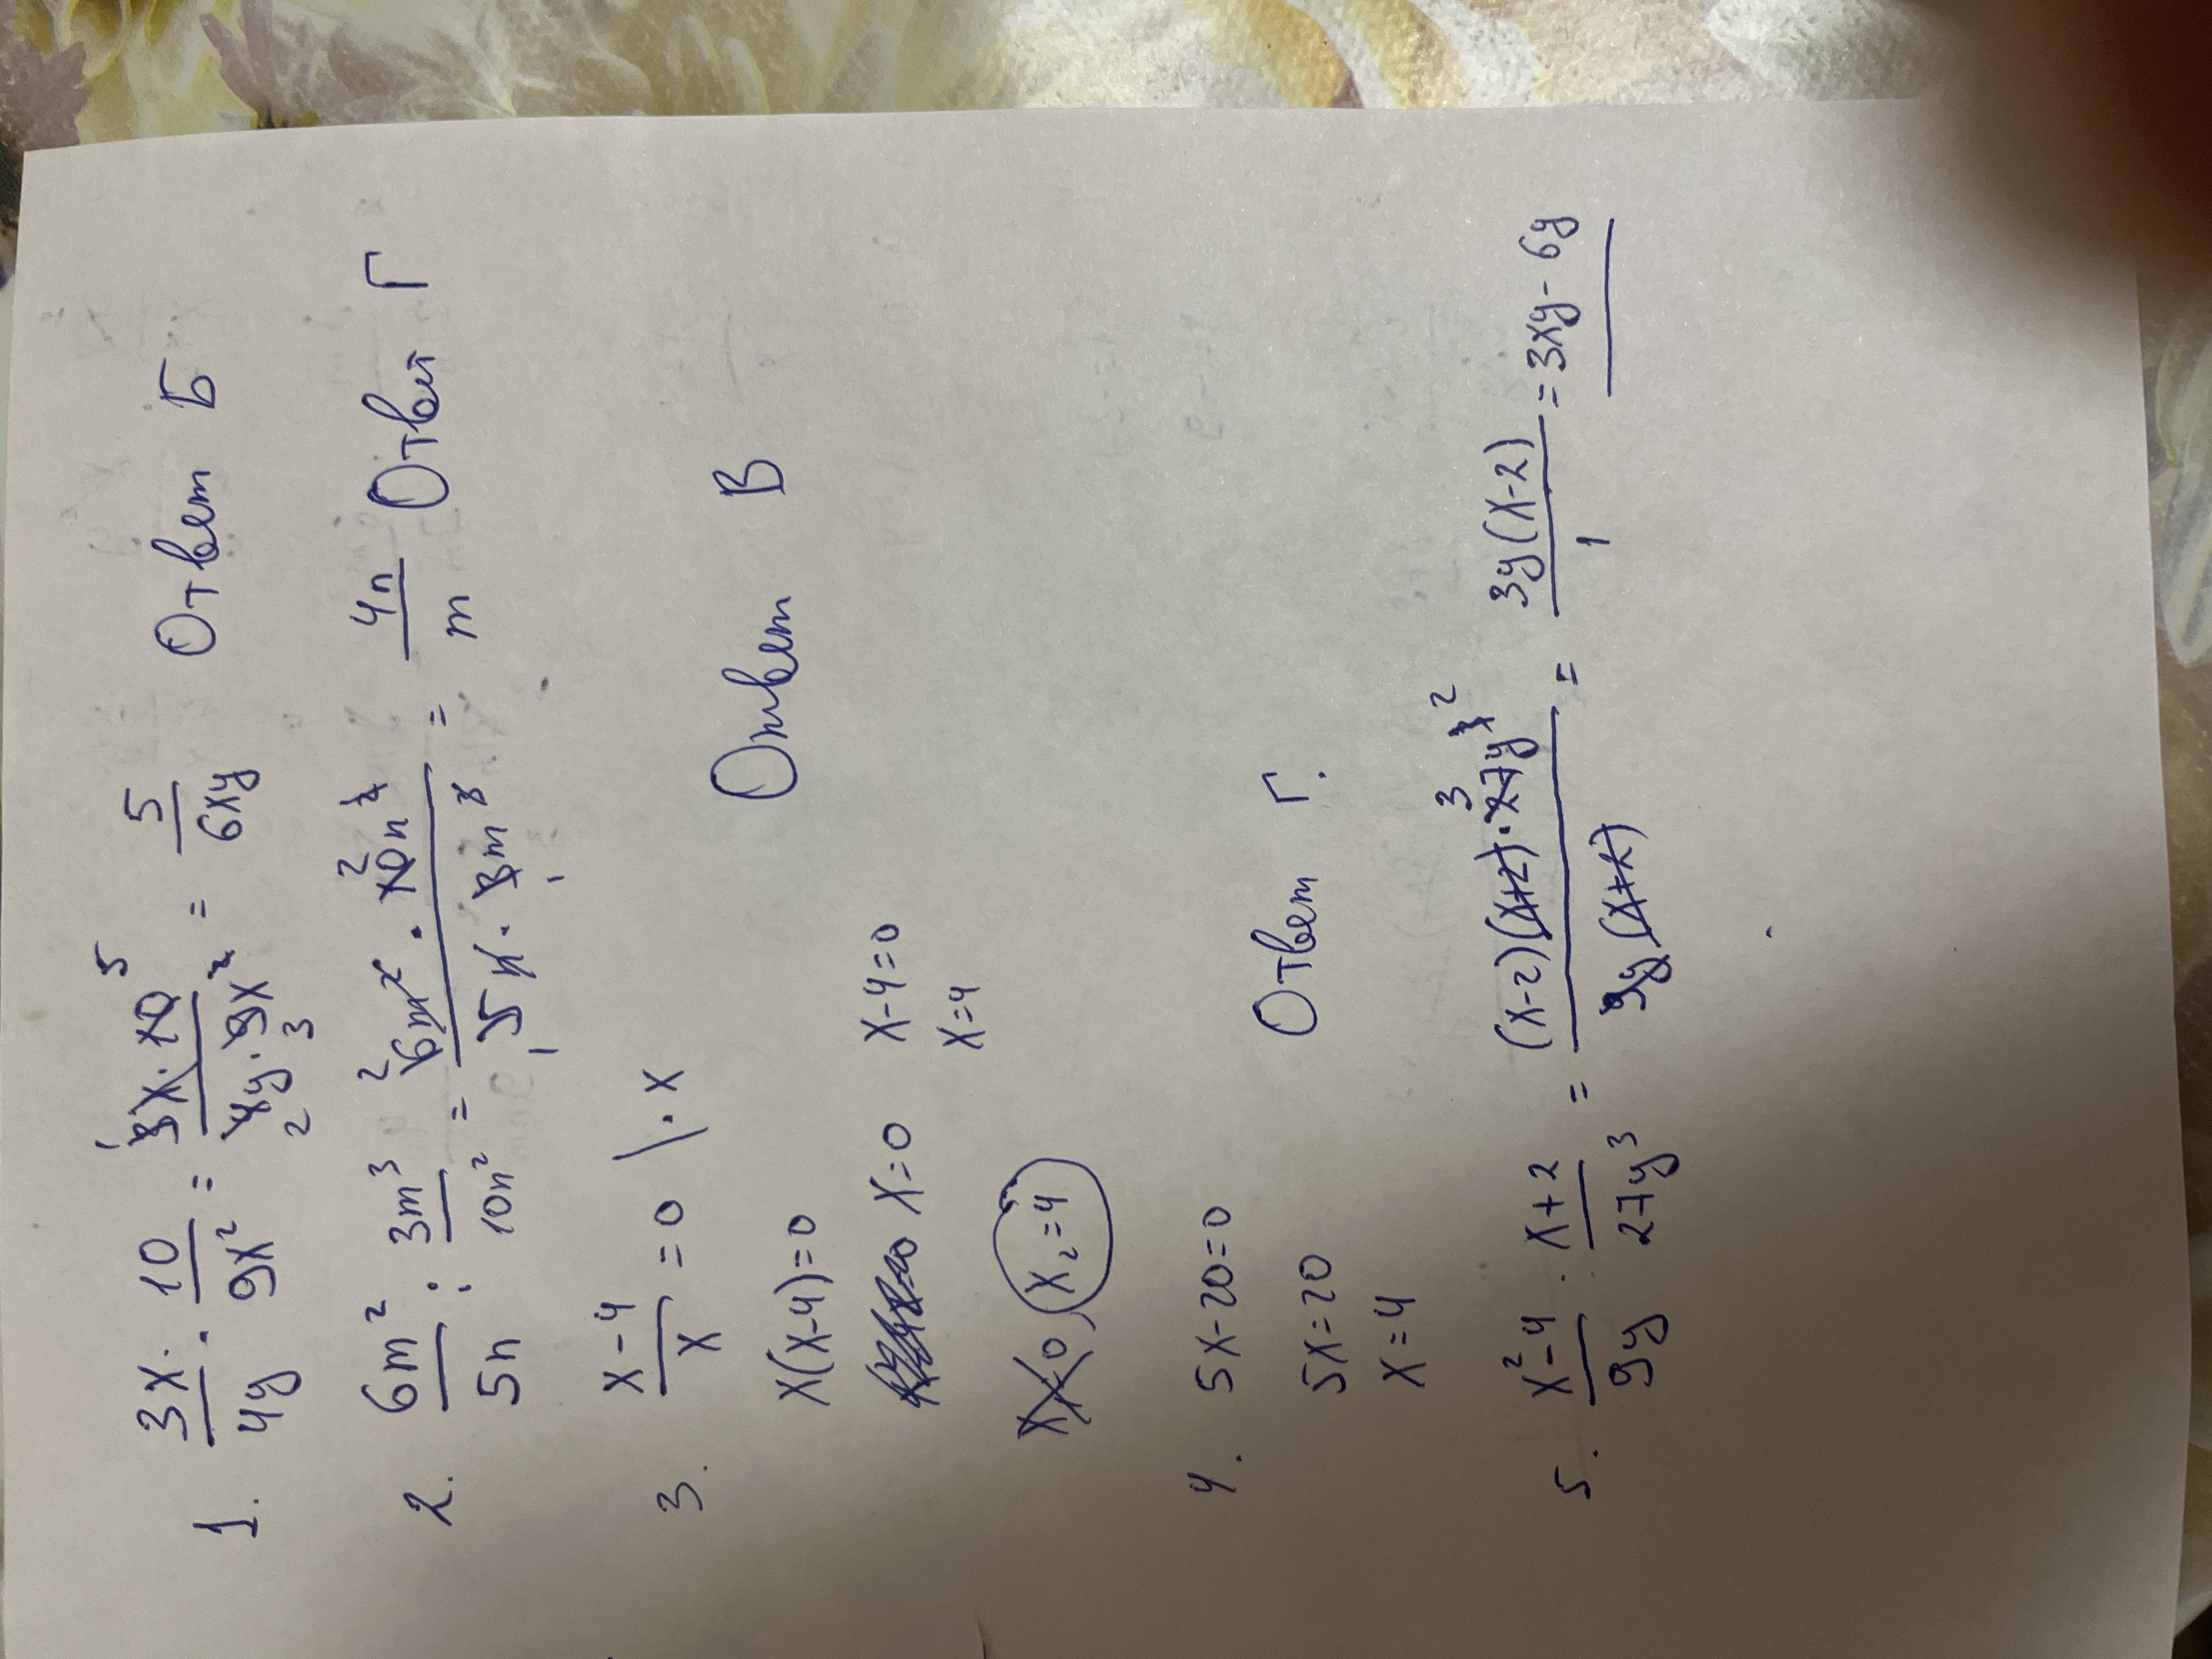 1. 3x/4y · 10/9x² = 3x·10/4y·9x² 1 5 2 3 = 5/6xy Ответ Б
2. 6m²/5n : 3m³/10n² = 6m²·10n²/5n·3m³ 2 2 1 1 = 4n/m Ответ Г
3. x-4/x = 0 \ ·x
x(x-4)=0 Ответ В
x=0 x-4=0
x=4
x=0, x₂=4
4. 5x-20=0
5x=20 Ответ Г.
x=4
5. x²-4/9y : x+2/27y³ = (x-2)(x+2)·27y³/9y(x+2) 3 2 = 3y(x-2)/1 = 3xy-6y